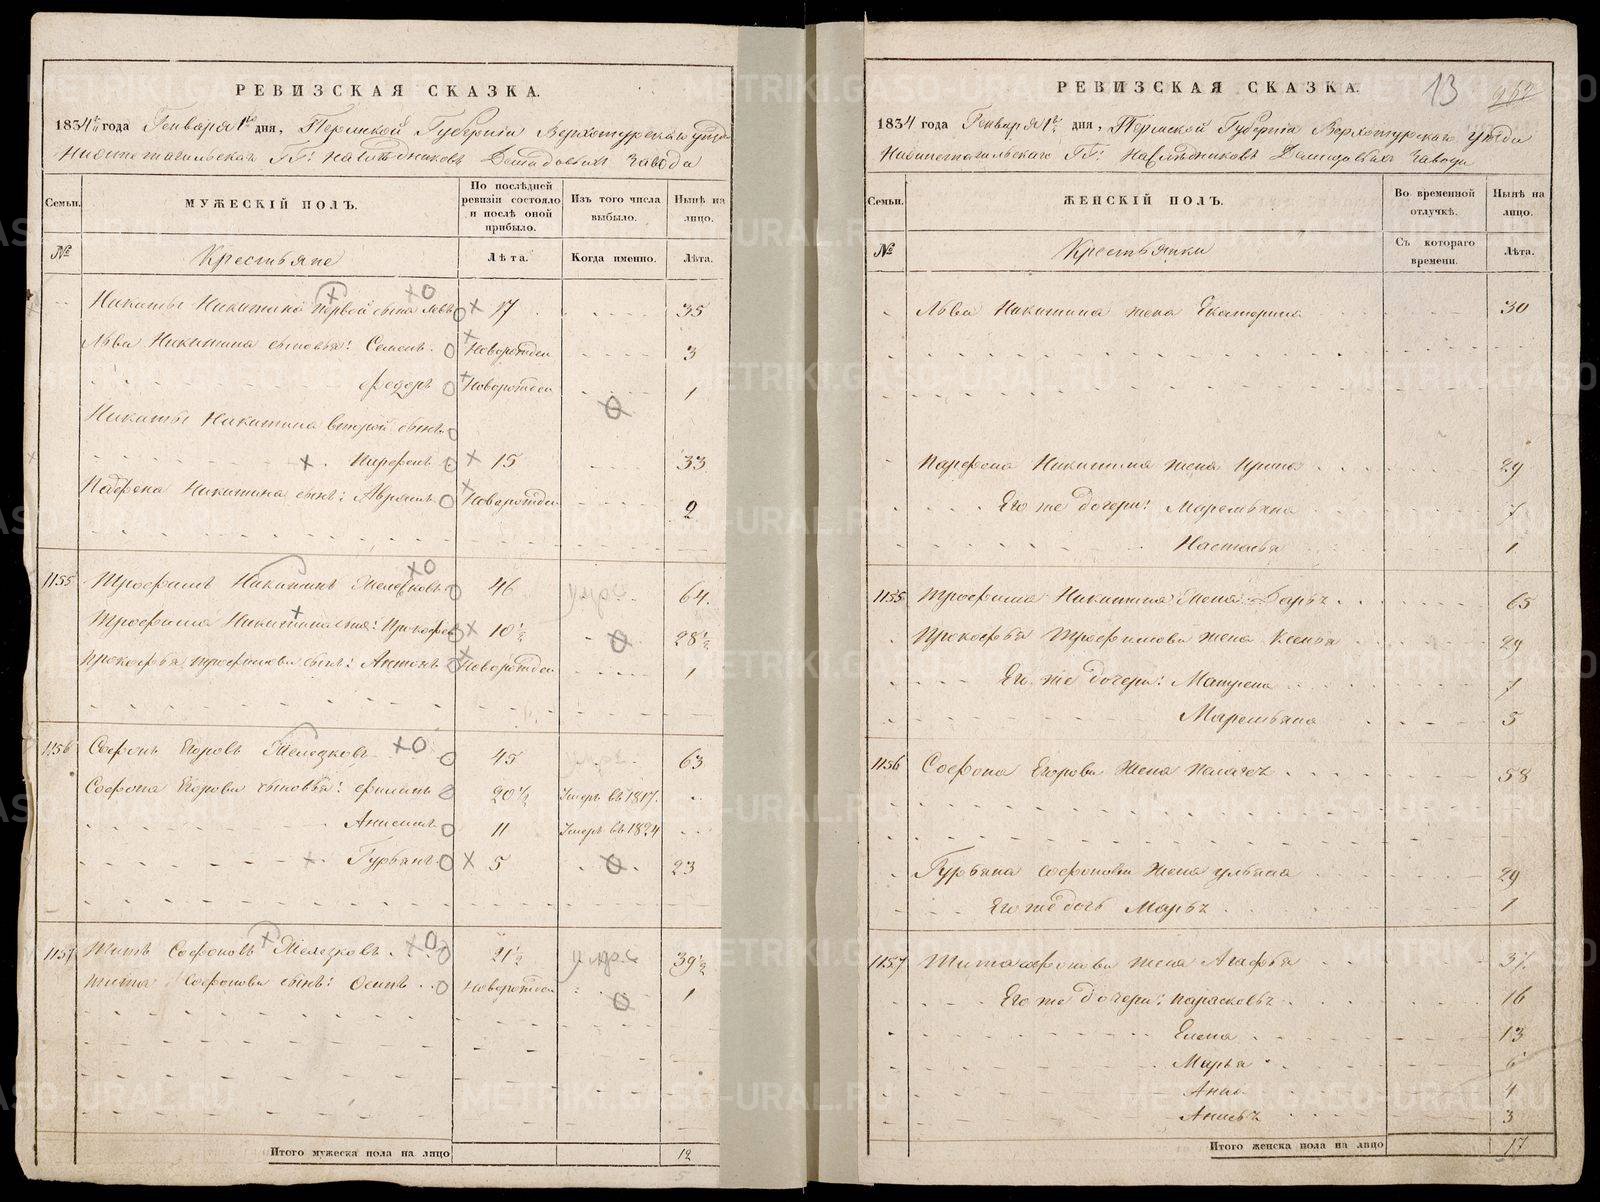 РЕВИЗСКАЯ СКАЗКА.
1834 года Генваря 1го дня, Пермской Губернiи Верхотурскаго уѣзда
Нижнетагильскаго ГГ: наслѣдниковъ Демидовыхъ завода
Семьи.
МУЖЕСКІЙ ПОЛЪ.
По послѣдней ревизіи состояло и послѣ оной прибыло.
Изъ того числа выбыло.
Нынѣ на лицо.
№
Крестьяне
Лѣта.
Когда именно.
Лѣта.
Никиты Никитина первой сына Левъ 17 35
Льва Никитина сыновья: Семенъ Новорожден 3
Федоръ Новорожден 1
Никиты Никитина второй сынъ
Парфенъ 15 33
Парфена Никитина сынъ: Аврамъ Новорожден 2
1155 Трофимъ Никитинъ Железковъ 46 умре 64.
Трофима Никитина сынъ: Прокофей 10½ 28½
Прокофья Трофимова сынъ: Антонъ Новорожден 1
1156 Софонъ Егоровъ Железковъ 45 умре. 63
Софона Егорова сыновья: Филипъ 20½ Умеръ въ 1817.
Анисимъ 11 Умеръ въ 1824
Гурьянъ 5 23
1157 Титъ Софоновъ Железковъ 21½ умре 39½
Тита Софонова сынъ: Осипъ Новорожден 1
Итого мужеска пола на лицо 12
13
РЕВИЗСКАЯ СКАЗКА.
1834 года Генваря 1го дня, Пермской Губернiи Верхотурскаго уѣзда
Нижнетагильскаго ГГ: Наслѣдниковъ Демидовыхъ Завода
Семьи.
ЖЕНСКІЙ ПОЛЪ.
Во временной отлучкѣ.
Нынѣ на лицо.
№
Крестьянки
Съ котораго времени.
Лѣта.
Льва Никитина жена Екатерина 30
Парфена Никитина жена Ирина 29
Его же дочери: Маремьяна 7
Настасья 1
1155 Трофима Никитина Жена Дарья 65
Прокофья Трофимова жена Ксенья 29
Его же дочери: Матрена 7
Маремьяна 5
1156 Софона Егорова Жена Пелагея 58
Гурьяна Софонова Жена Ульяна 29
Его же дочь Марья 1
1157 Тита Софонова жена Агафья 37
Его же дочери: Парасковья 16
Елена 13
Марья 6
Анна 4
Анисья 3
Итого женска пола на лицо 17
METRIKI.GASO-URAL.RU